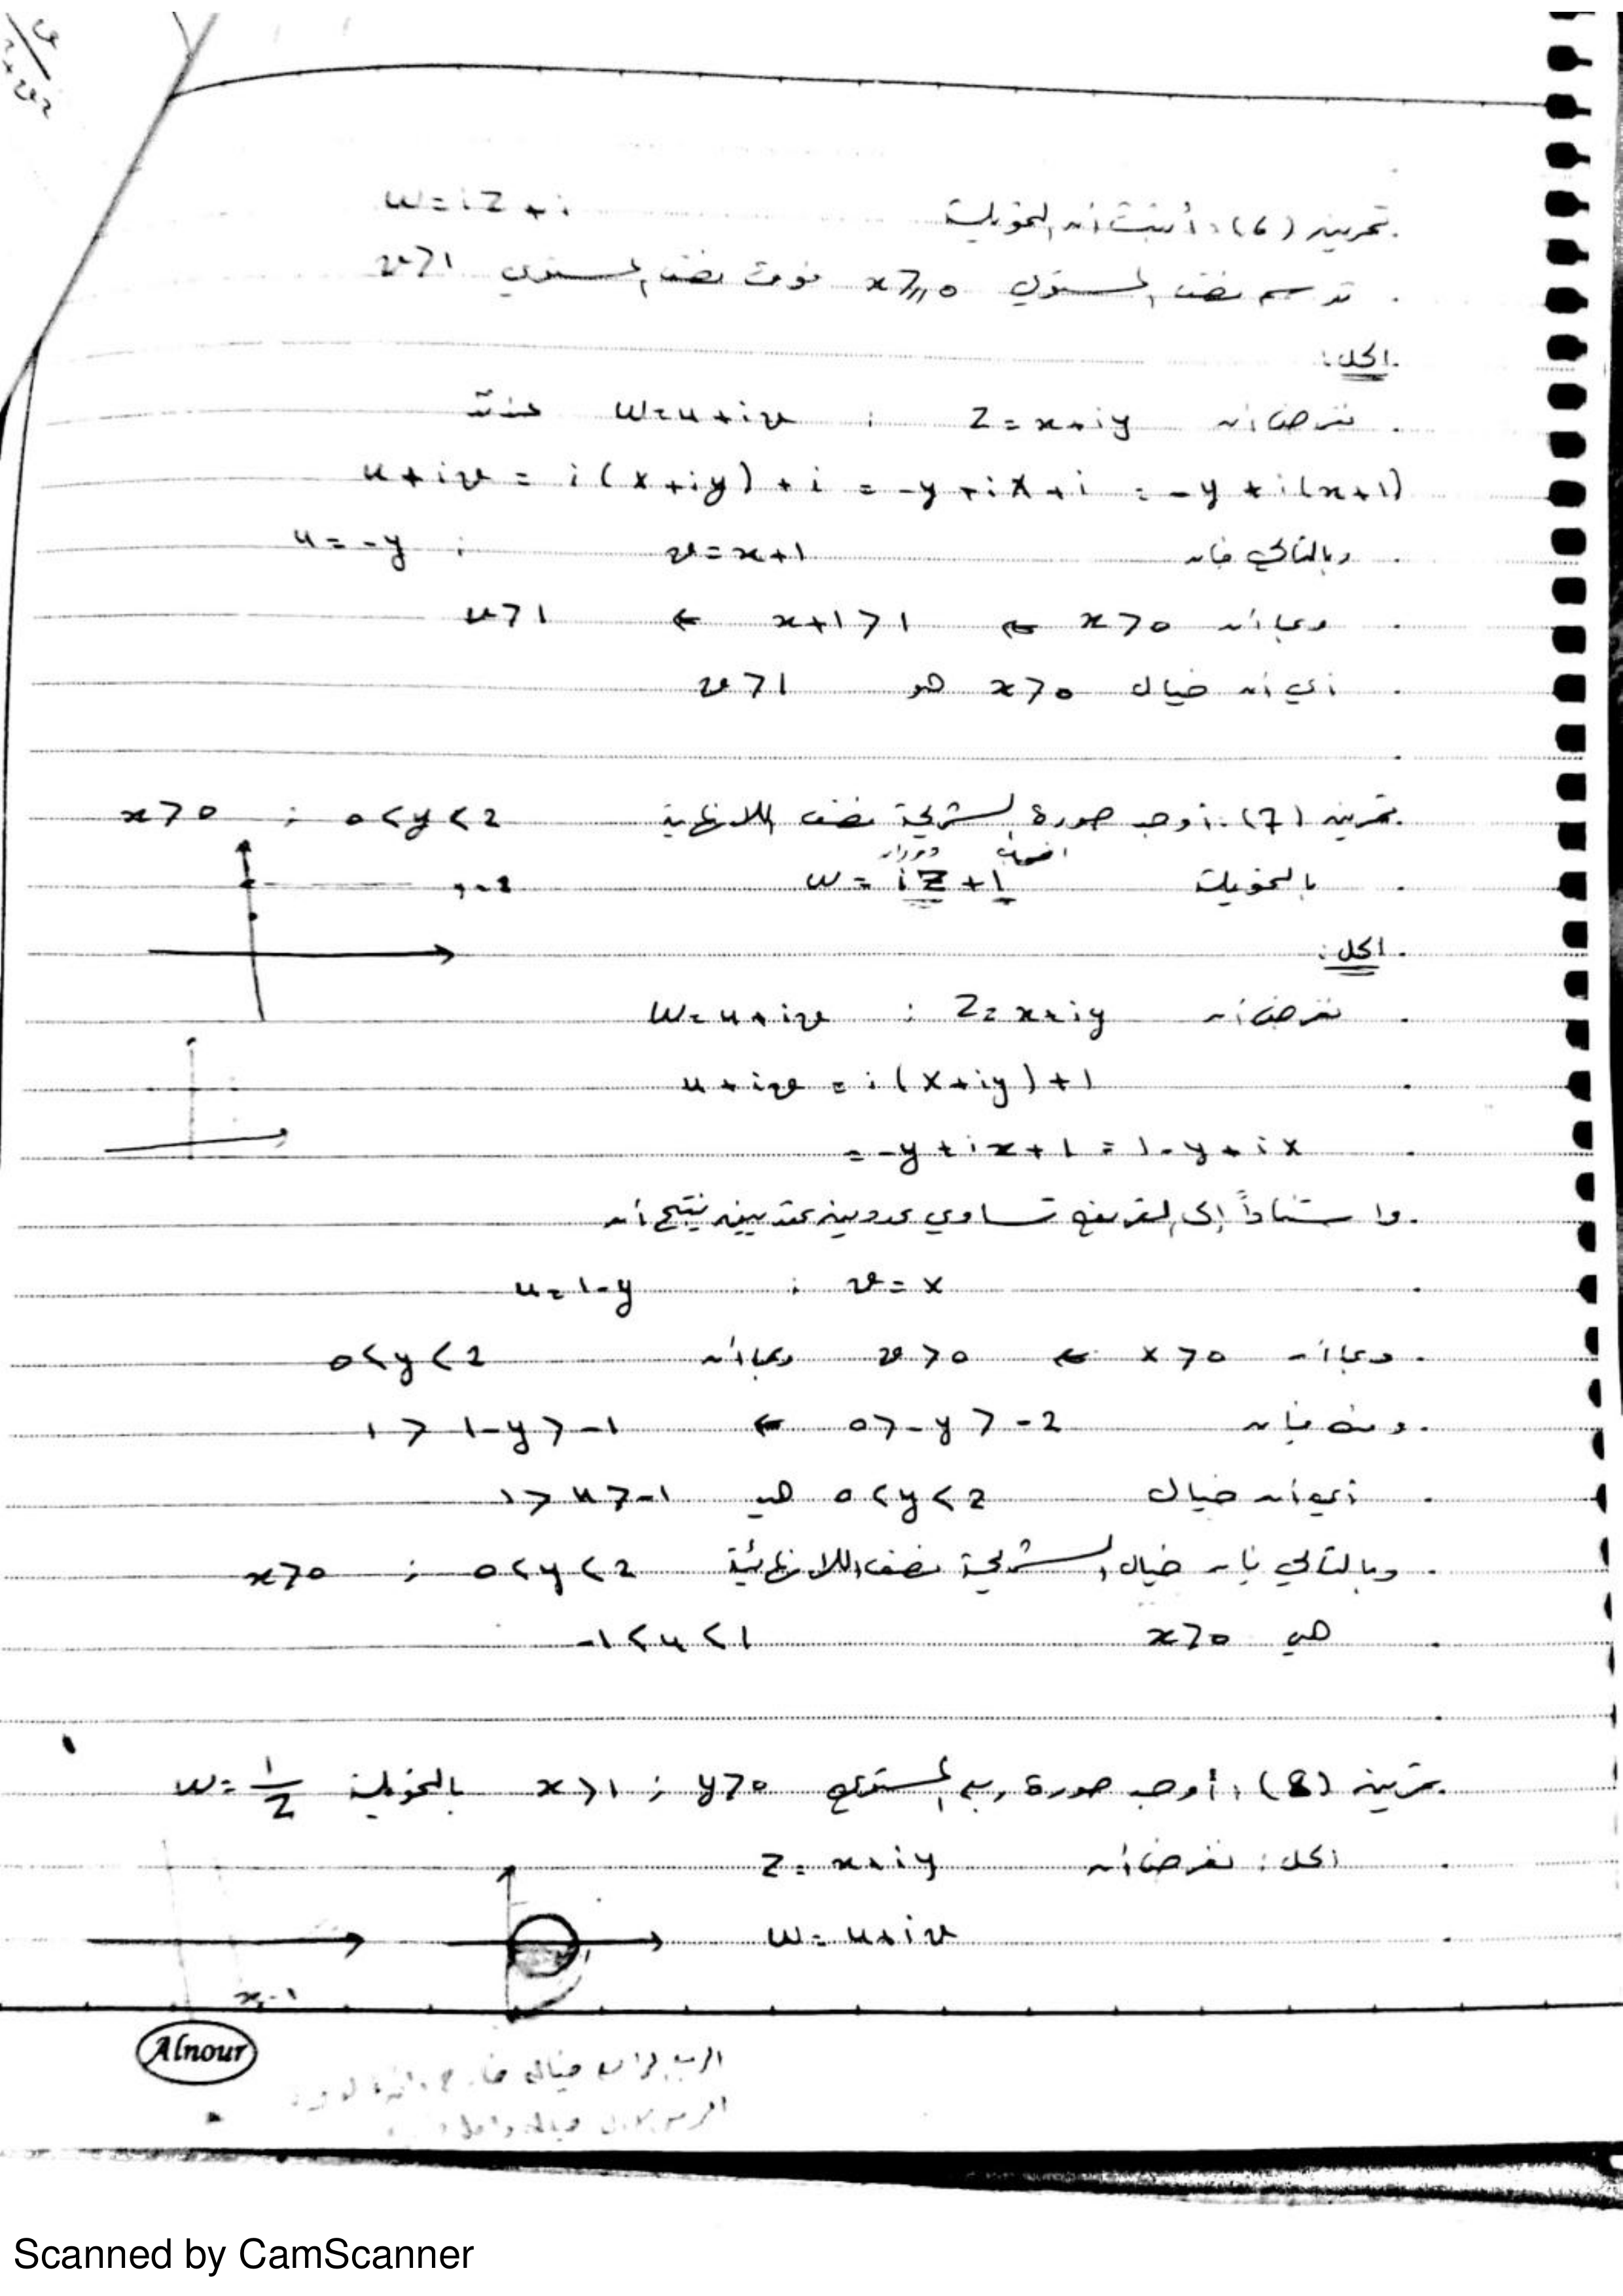 تمرين (6): أثبت أن التحويلة w = iz + i
ترسم نصف المستوي x > 0 فوق نصف المستوي v > 1
الحل:
نفرض أن z = x + iy ; w = u + iv عندئذ
u + iv = i(x + iy) + i = -y + ix + i = -y + i(x+1)
وبالتالي فإن v = x + 1 ; u = -y
وبما أن x > 0 ⇐ x + 1 > 1 ⇐ u > 1
أي أن خيال x > 0 هو v > 1
تمرين (7): أوجد صورة الشريحة نصف اللانهائية x > 0 ; 0 < y < 2
دوران انسحاب
بالتحويلة w = iz + 1
y = 2
الحل:
نفرض أن z = x + iy ; w = u + iv
u + iv = i(x + iy) + 1
= -y + ix + 1 = 1 - y + ix
واستناداً إلى تعريف تساوي عددين عقديين ينتج أن
v = x ; u = 1 - y
وبما أن x > 0 ⇐ v > 0 وبما أن 0 < y < 2
ومنه فإن 0 > -y > -2 ⇐ 1 > 1-y > -1
أي أن خيال 0 < y < 2 هو 1 > u > -1
وبالتالي فإن خيال الشريحة نصف اللانهائية x > 0 ; 0 < y < 2
هي x > 0 -1 < u < 1
تمرين (8): أوجد صورة ربع المستوي x > 1 ; y > 0 بالتحويلة w = 1/z
الحل: نفرض أن z = x + iy
w = u + iv
x = 1
Alnour
Scanned by CamScanner